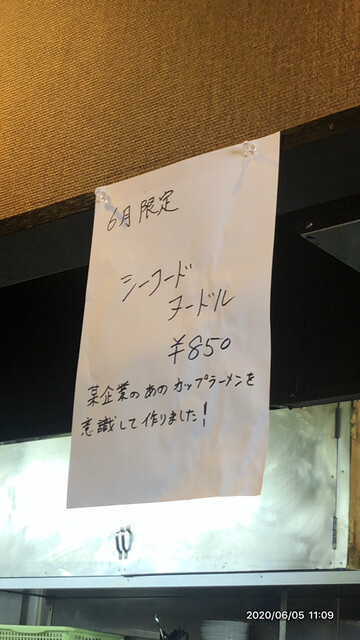 6月限定
シーフード
ヌードル
¥850
某企業のあのカップラーメンを
意識して作りました!
2020/06/05 11:09